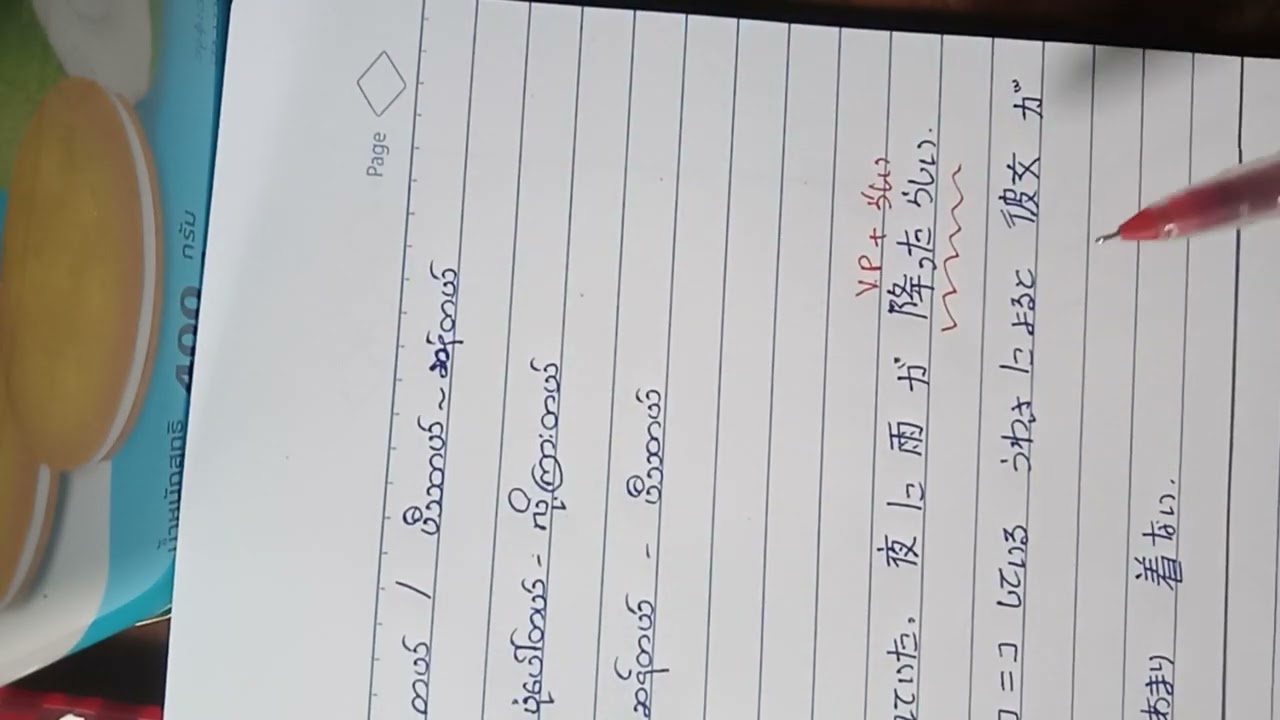 Page
တယ် / ဖို့သာတယ် ~ ဆန့်တယ်
ပုံပေါ်တယ် = လို့ကြားတယ်
ဆန့်တယ် - ဖို့သာတယ်
V.P + らしい
ていた. 夜に雨が降ったらしい.
ニコしている うわさによると 彼女が
あまり 着ない.
น้ำหนักสุทธิ 400 กรัม